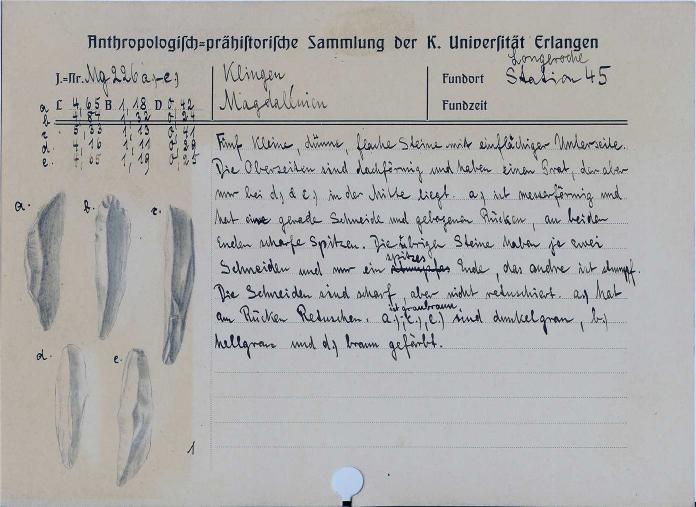 Anthropologisch=prähistorische Sammlung der K. Universität Erlangen
J.=Nr. Mg 226 a,-e,)
Klingen
Fundort Longeroche
Station 45
Magdalénien
Fundzeit
L B D
a 4,65 1,18 0,42
b 4,84 1,32
c 5,33 1,13
d. 4,16 1,11
e. 4,05 1,19 0,25
Fünf kleine, dünne, flache Steine mit einflächiger Unterseite.
Die Oberseiten sind dachförmig und haben einen Grat, der aber
nur bei d,) & c,) in der Mitte liegt. a,) ist messerförmig und
hat eine gerade Schneide und gebogenen Rücken, an beiden
Enden scharfe Spitzen. Die übrigen Steine haben je zwei
spitzes
Schneiden und nur ein stumpfes Ende, das andre ist stumpf.
Die Schneiden sind scharf, aber nicht retuschiert. a,) hat
ist graubraun,
am Rücken Retuschen. a,), c,), e,) sind dunkelgrau, b,)
hellgrau und d,) braun gefärbt.
a. b. c.
d. e.
1